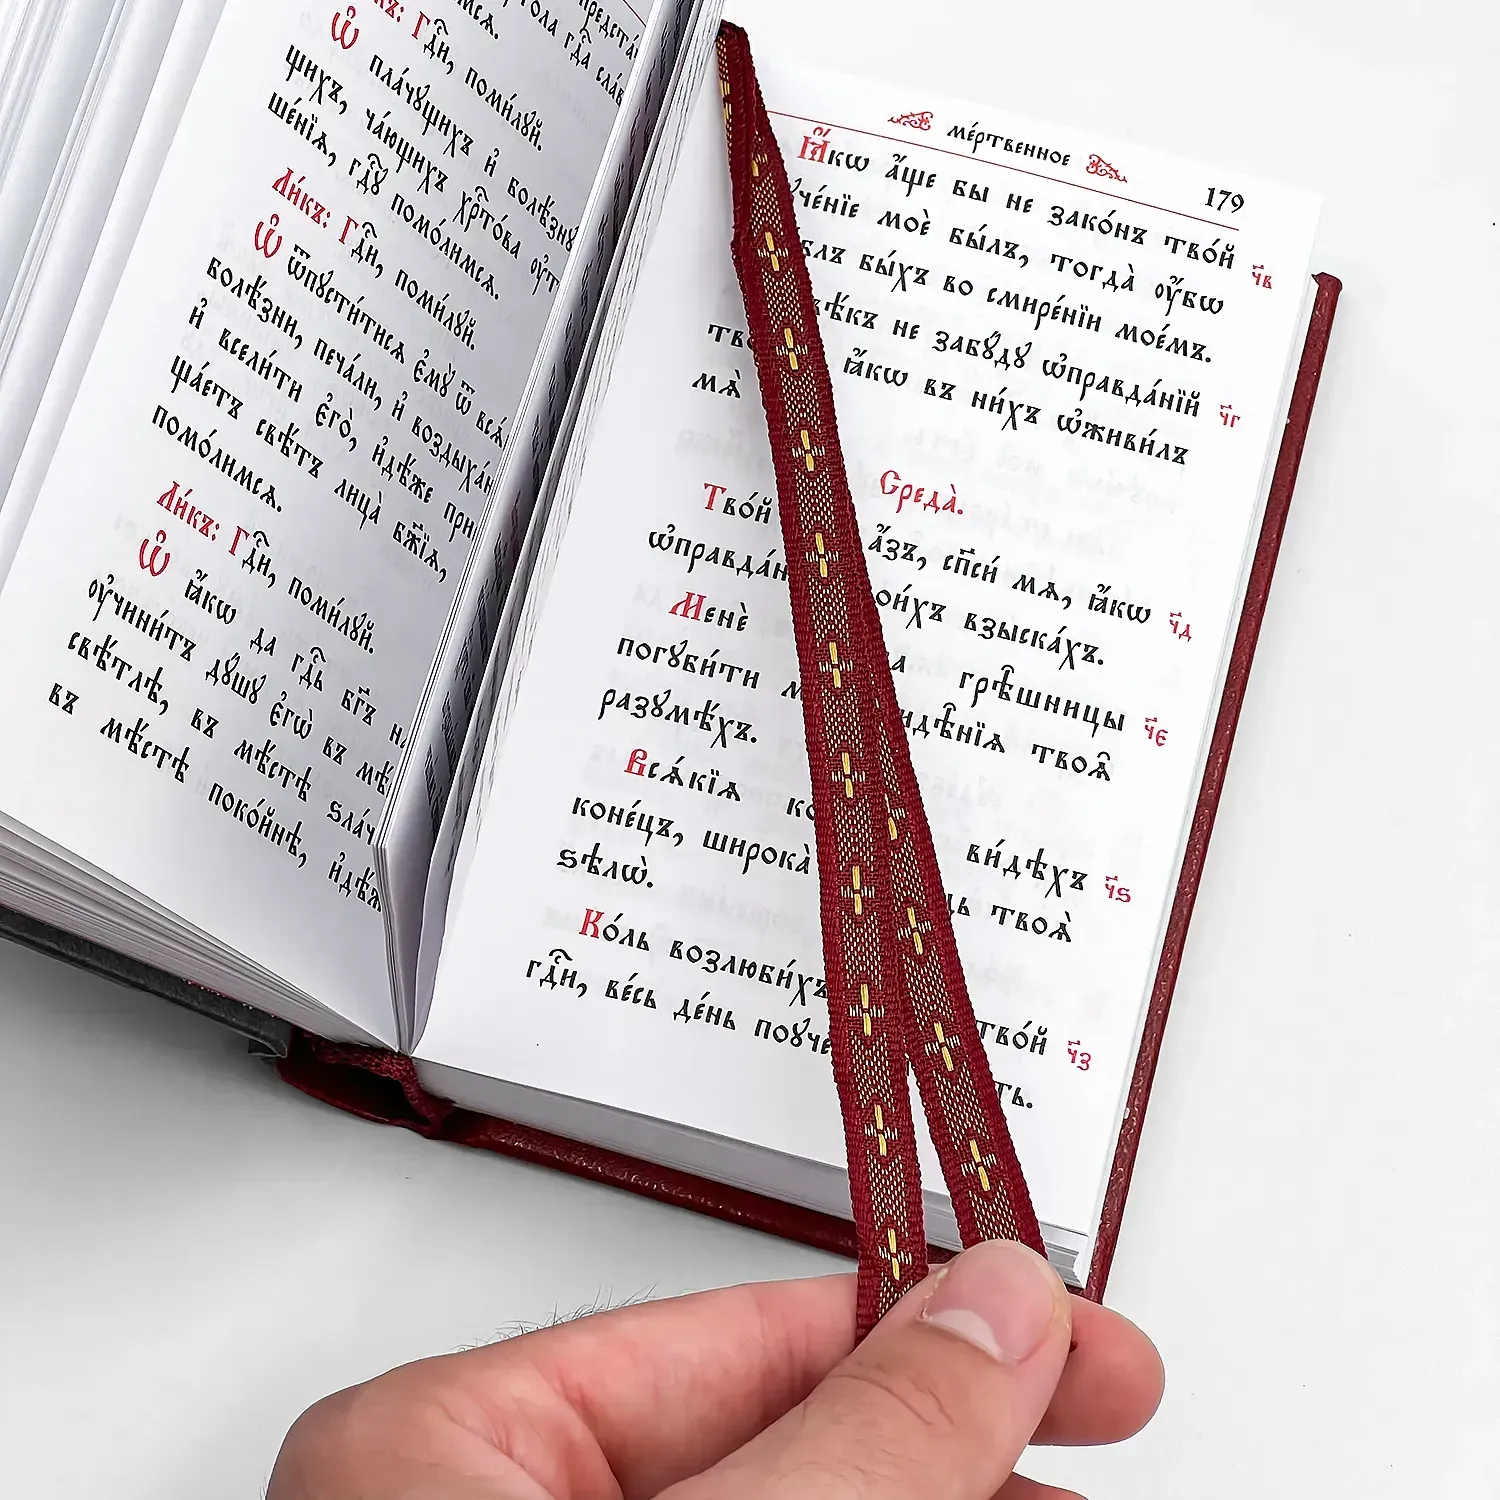 предста
тола гдⷭ҇а слав
шемсѧ.
Ли́къ: Гдⷭ҇и, поми́лꙋй.
Ѽ пла́чꙋщихъ и҆ болѣ́знꙋ
щихъ, ча́ющихъ хрⷭ҇то́ва оу҆т
ше́нїѧ, гдⷭ҇ꙋ помо́лимсѧ.
Ли́къ: Гдⷭ҇и, поми́лꙋй.
Ѽ ѿпꙋсти́тисѧ є҆мꙋ̀ ѿ всѧ́
болѣ́зни, печа́ли, и҆ воздыха́н
и҆ всели́ти є҆го̀, и҆дѣ́же при
ща́етъ свѣ́тъ лица̀ бж҃їѧ,
помо́лимсѧ.
Ли́къ: Гдⷭ҇и, поми́лꙋй.
Ѽ ꙗ҆́кѡ да гдⷭ҇ь бг҃ъ н
оу҆чини́тъ дꙋ́шꙋ є҆гѡ̀ въ мѣ́
свѣ́тлѣ, въ мѣ́стѣ ѕла́ч
въ мѣ́стѣ поко́йнѣ, и҆дѣ́
ме́ртвенное 179
Ꙗ҆́кѡ а҆́ще бы не зако́нъ тво́й чв҃
ꙋче́нїе моѐ бы́лъ, тогда̀ оу҆́бѡ
блъ бы́хъ во смире́нїи мое́мъ.
вѣ́къ не забꙋ́дꙋ ѡ҆правда́нїй чг҃
тво ꙗ҆́кѡ въ ни́хъ ѡ҆живи́лъ
мѧ̀
Среда̀.
Тво́й а҆́зъ, сп҃си́ мѧ, ꙗ҆́кѡ чд҃
ѡ҆правда́н ои́хъ взыска́хъ.
Менѐ а грѣ̑шницы че҃
погꙋби́ти м идѣ̑нїѧ твоѧ̑
разꙋмѣ́хъ.
Всѧ́кїѧ ко ви́дѣхъ чѕ҃
коне́цъ, широка̀ дь твоѧ̀
ѕѣлѡ̀.
Ко́ль возлюби́хъ тво́й чз҃
гдⷭ҇и, ве́сь де́нь поꙋче ть.